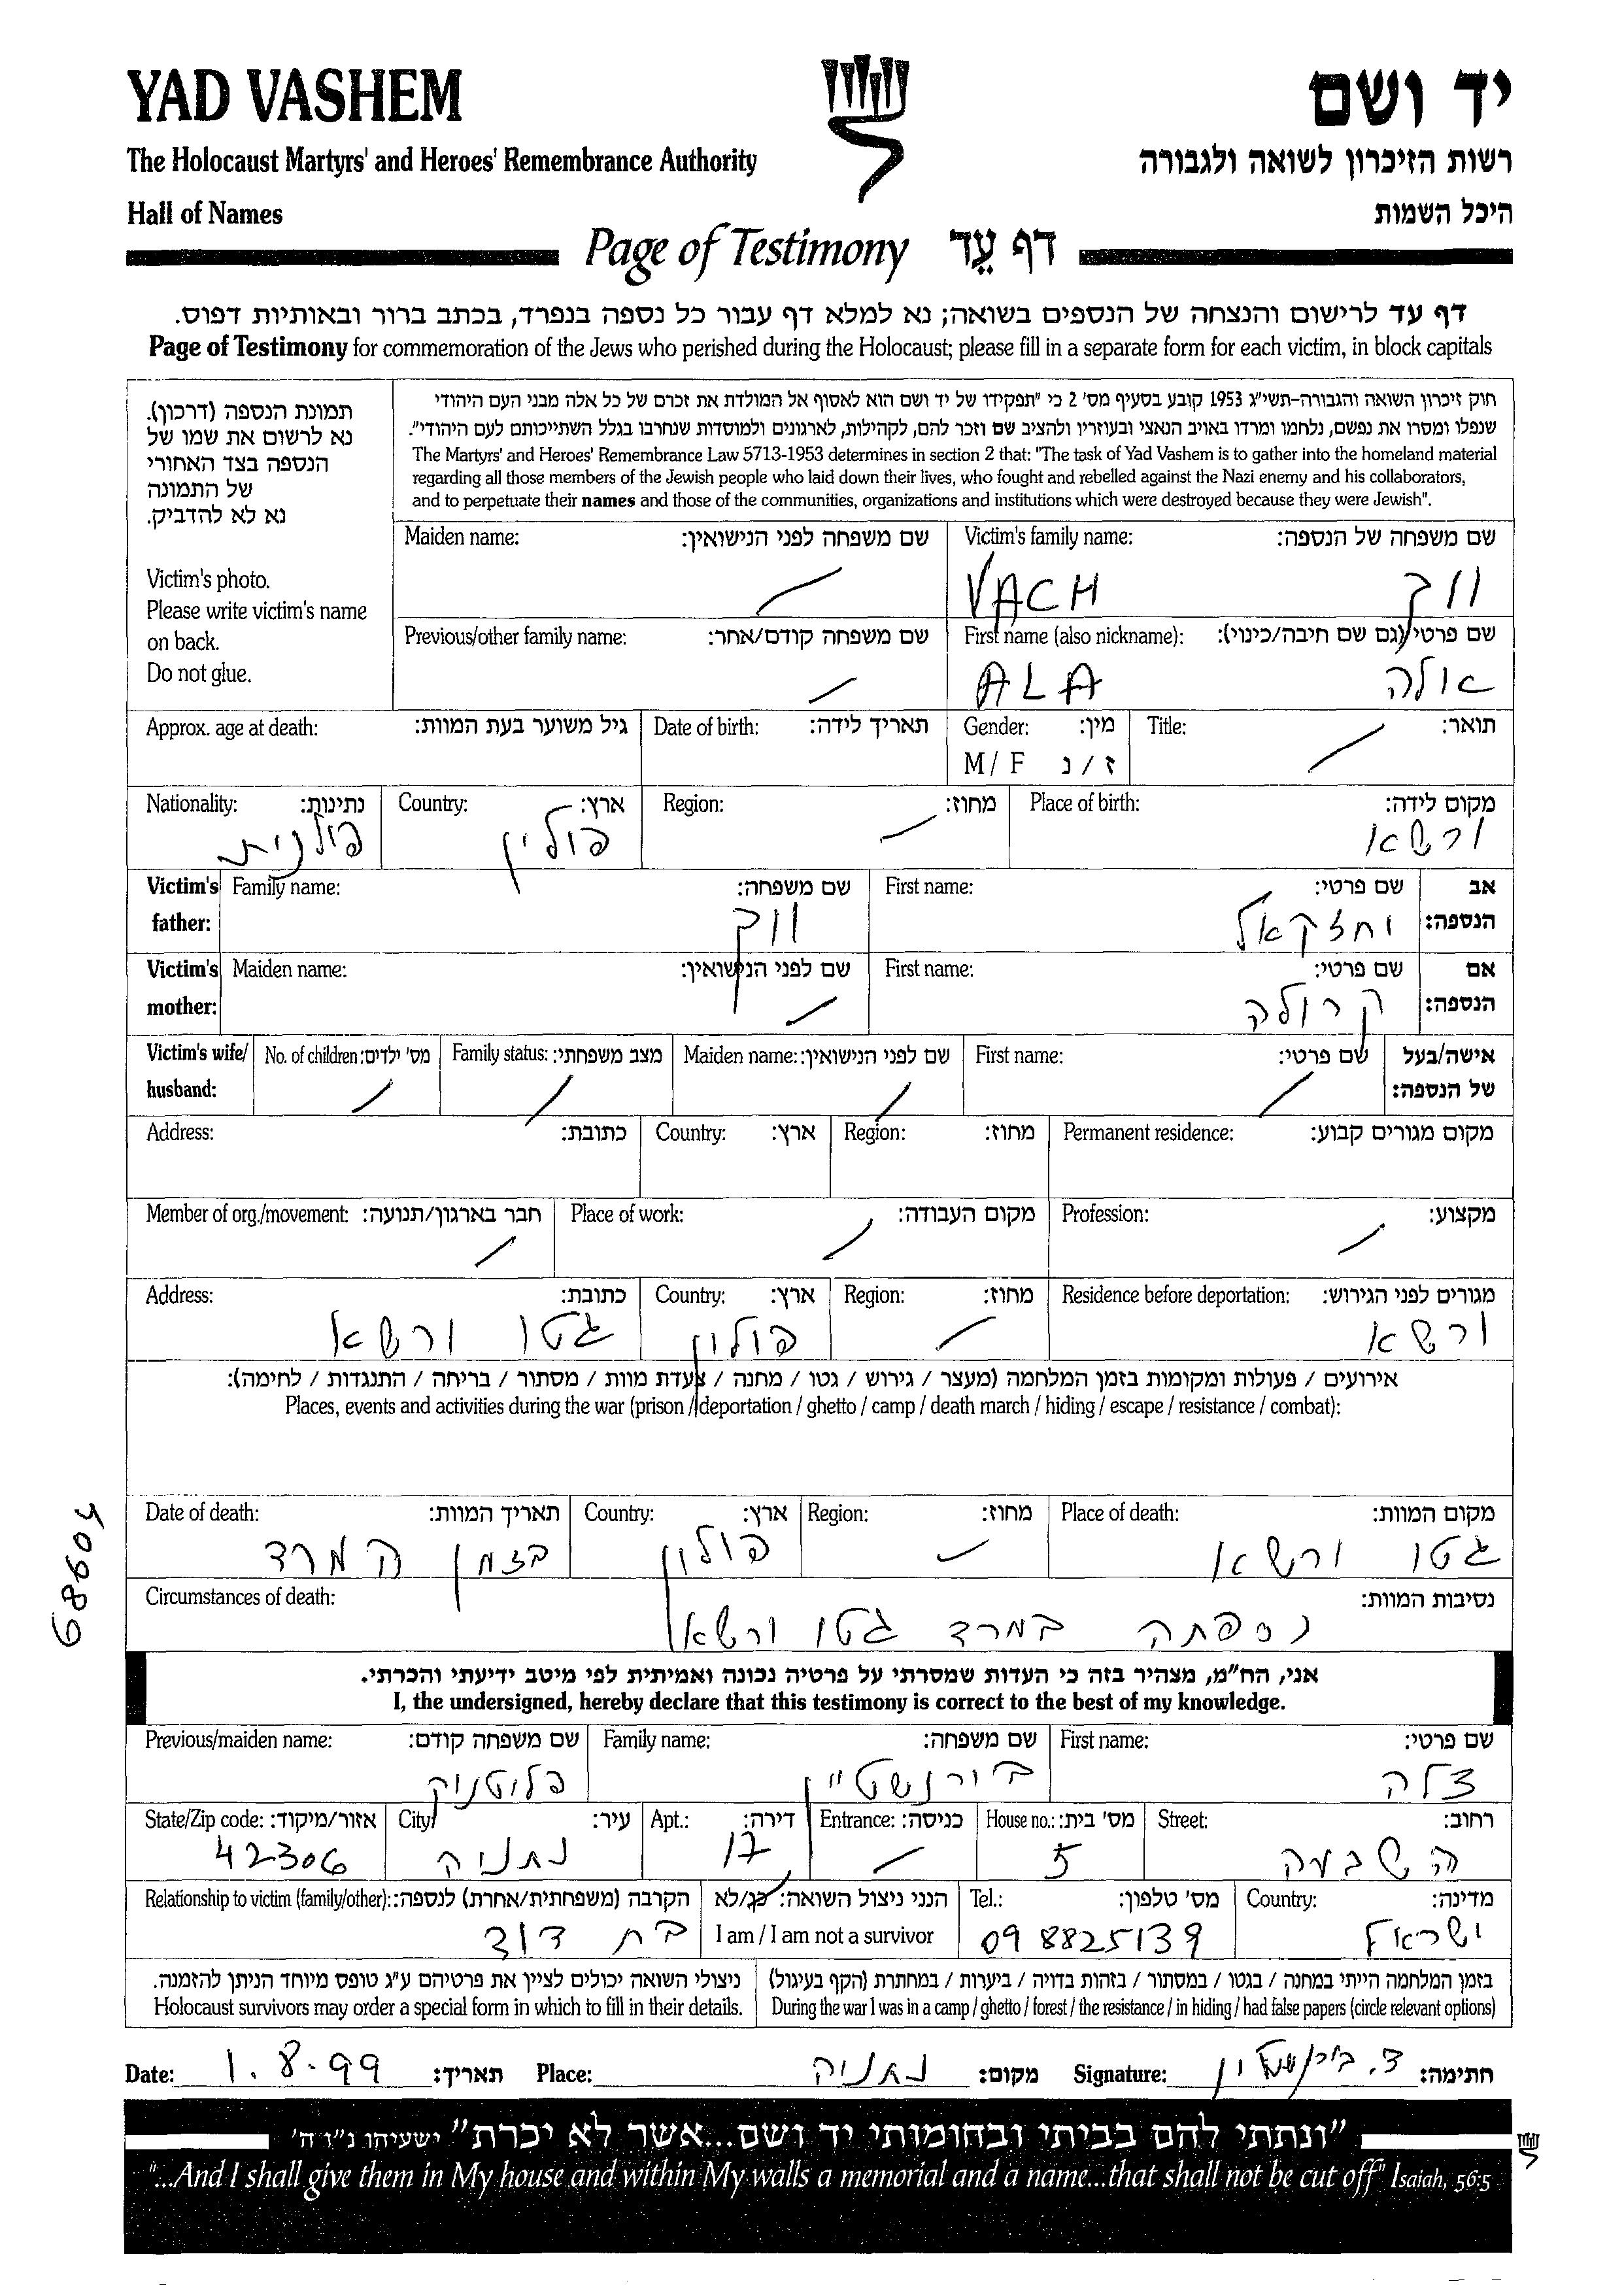 YAD VASHEM
יד ושם
The Holocaust Martyrs' and Heroes' Remembrance Authority
רשות הזיכרון לשואה ולגבורה
Hall of Names
היכל השמות
Page of Testimony דף עֵד
דף עד לרישום והנצחה של הנספים בשואה; נא למלא דף עבור כל נספה בנפרד, בכתב ברור ובאותיות דפוס.
Page of Testimony for commemoration of the Jews who perished during the Holocaust; please fill in a separate form for each victim, in block capitals
תמונת הנספה (דרכון).
נא לרשום את שמו של
הנספה בצד האחורי
של התמונה
נא לא להדביק.
Victim's photo.
Please write victim's name
on back.
Do not glue.
חוק זיכרון השואה והגבורה-תשי"ג 1953 קובע בסעיף מס' 2 כי "תפקידו של יד ושם הוא לאסוף אל המולדת את זכרם של כל אלה מבני העם היהודי
שנפלו ומסרו את נפשם, נלחמו ומרדו באויב הנאצי ובעוזריו ולהציב שם וזכר להם, לקהילות, לארגונים ולמוסדות שנחרבו בגלל השתייכותם לעם היהודי".
The Martyrs' and Heroes' Remembrance Law 5713-1953 determines in section 2 that: "The task of Yad Vashem is to gather into the homeland material
regarding all those members of the Jewish people who laid down their lives, who fought and rebelled against the Nazi enemy and his collaborators,
and to perpetuate their names and those of the communities, organizations and institutions which were destroyed because they were Jewish".
Maiden name: שם משפחה לפני הנישואין: Victim's family name: שם משפחה של הנספה:
VACH ווך
Previous/other family name: שם משפחה קודם/אחר: First name (also nickname): שם פרטי (גם שם חיבה/כינוי):
ALA אולה
Approx. age at death: גיל משוער בעת המוות: Date of birth: תאריך לידה: Gender: מין: Title: תואר:
M / F ז / נ
Nationality: נתינות: Country: ארץ: Region: מחוז: Place of birth: מקום לידה:
פולנית פולין ורשא
Victim's father: Family name: שם משפחה: First name: שם פרטי: אב הנספה:
ווך יחזקאל
Victim's mother: Maiden name: שם לפני הנישואין: First name: שם פרטי: אם הנספה:
קרולה
Victim's wife/ husband: No. of children: מס' ילדים: Family status: מצב משפחתי: Maiden name: שם לפני הנישואין: First name: שם פרטי: אישה/בעל של הנספה:
Address: כתובת: Country: ארץ: Region: מחוז: Permanent residence: מקום מגורים קבוע:
Member of org./movement: חבר בארגון/תנועה: Place of work: מקום העבודה: Profession: מקצוע:
Address: כתובת: Country: ארץ: Region: מחוז: Residence before deportation: מגורים לפני הגירוש:
גטו ורשא פולין ורשא
אירועים / פעולות ומקומות בזמן המלחמה (מעצר / גירוש / גטו / מחנה / צעדת מוות / מסתור / בריחה / התנגדות / לחימה):
Places, events and activities during the war (prison / deportation / ghetto / camp / death march / hiding / escape / resistance / combat):
68604
Date of death: תאריך המוות: Country: ארץ: Region: מחוז: Place of death: מקום המוות:
בזמן המרד פולין גטו ורשא
Circumstances of death: נסיבות המוות:
נספתה במרד גטו ורשא
אני, הח"מ, מצהיר בזה כי העדות שמסרתי על פרטיה נכונה ואמיתית לפי מיטב ידיעתי והכרתי.
I, the undersigned, hereby declare that this testimony is correct to the best of my knowledge.
Previous/maiden name: שם משפחה קודם: Family name: שם משפחה: First name: שם פרטי:
פלוטניק בורנשטיין צלה
State/Zip code: אזור/מיקוד: City: עיר: Apt.: דירה: Entrance: כניסה: House no.: מס' בית: Street: רחוב:
42306 נתניה 17 5 השבעה
Relationship to victim (family/other): הקרבה (משפחתית/אחרת) לנספה: הנני ניצול השואה: כן/לא Tel.: מס' טלפון: Country: מדינה:
בת דוד I am / I am not a survivor 09 8825139 ישראל
ניצולי השואה יכולים לציין את פרטיהם ע"ג טופס מיוחד הניתן להזמנה.
Holocaust survivors may order a special form in which to fill in their details.
בזמן המלחמה הייתי במחנה / בגטו / במסתור / בזהות בדויה / ביערות / במחתרת (הקף בעיגול)
During the war I was in a camp / ghetto / forest / the resistance / in hiding / had false papers (circle relevant options)
Date: 1.8.99 תאריך: Place: נתניה מקום: Signature: צ. בורנשטיין חתימה:
"ונתתי להם בביתי ובחומותי יד ושם...אשר לא יכרת" ישעיהו נ"ו ה'
"...And I shall give them in My house and within My walls a memorial and a name...that shall not be cut off" Isaiah, 56:5